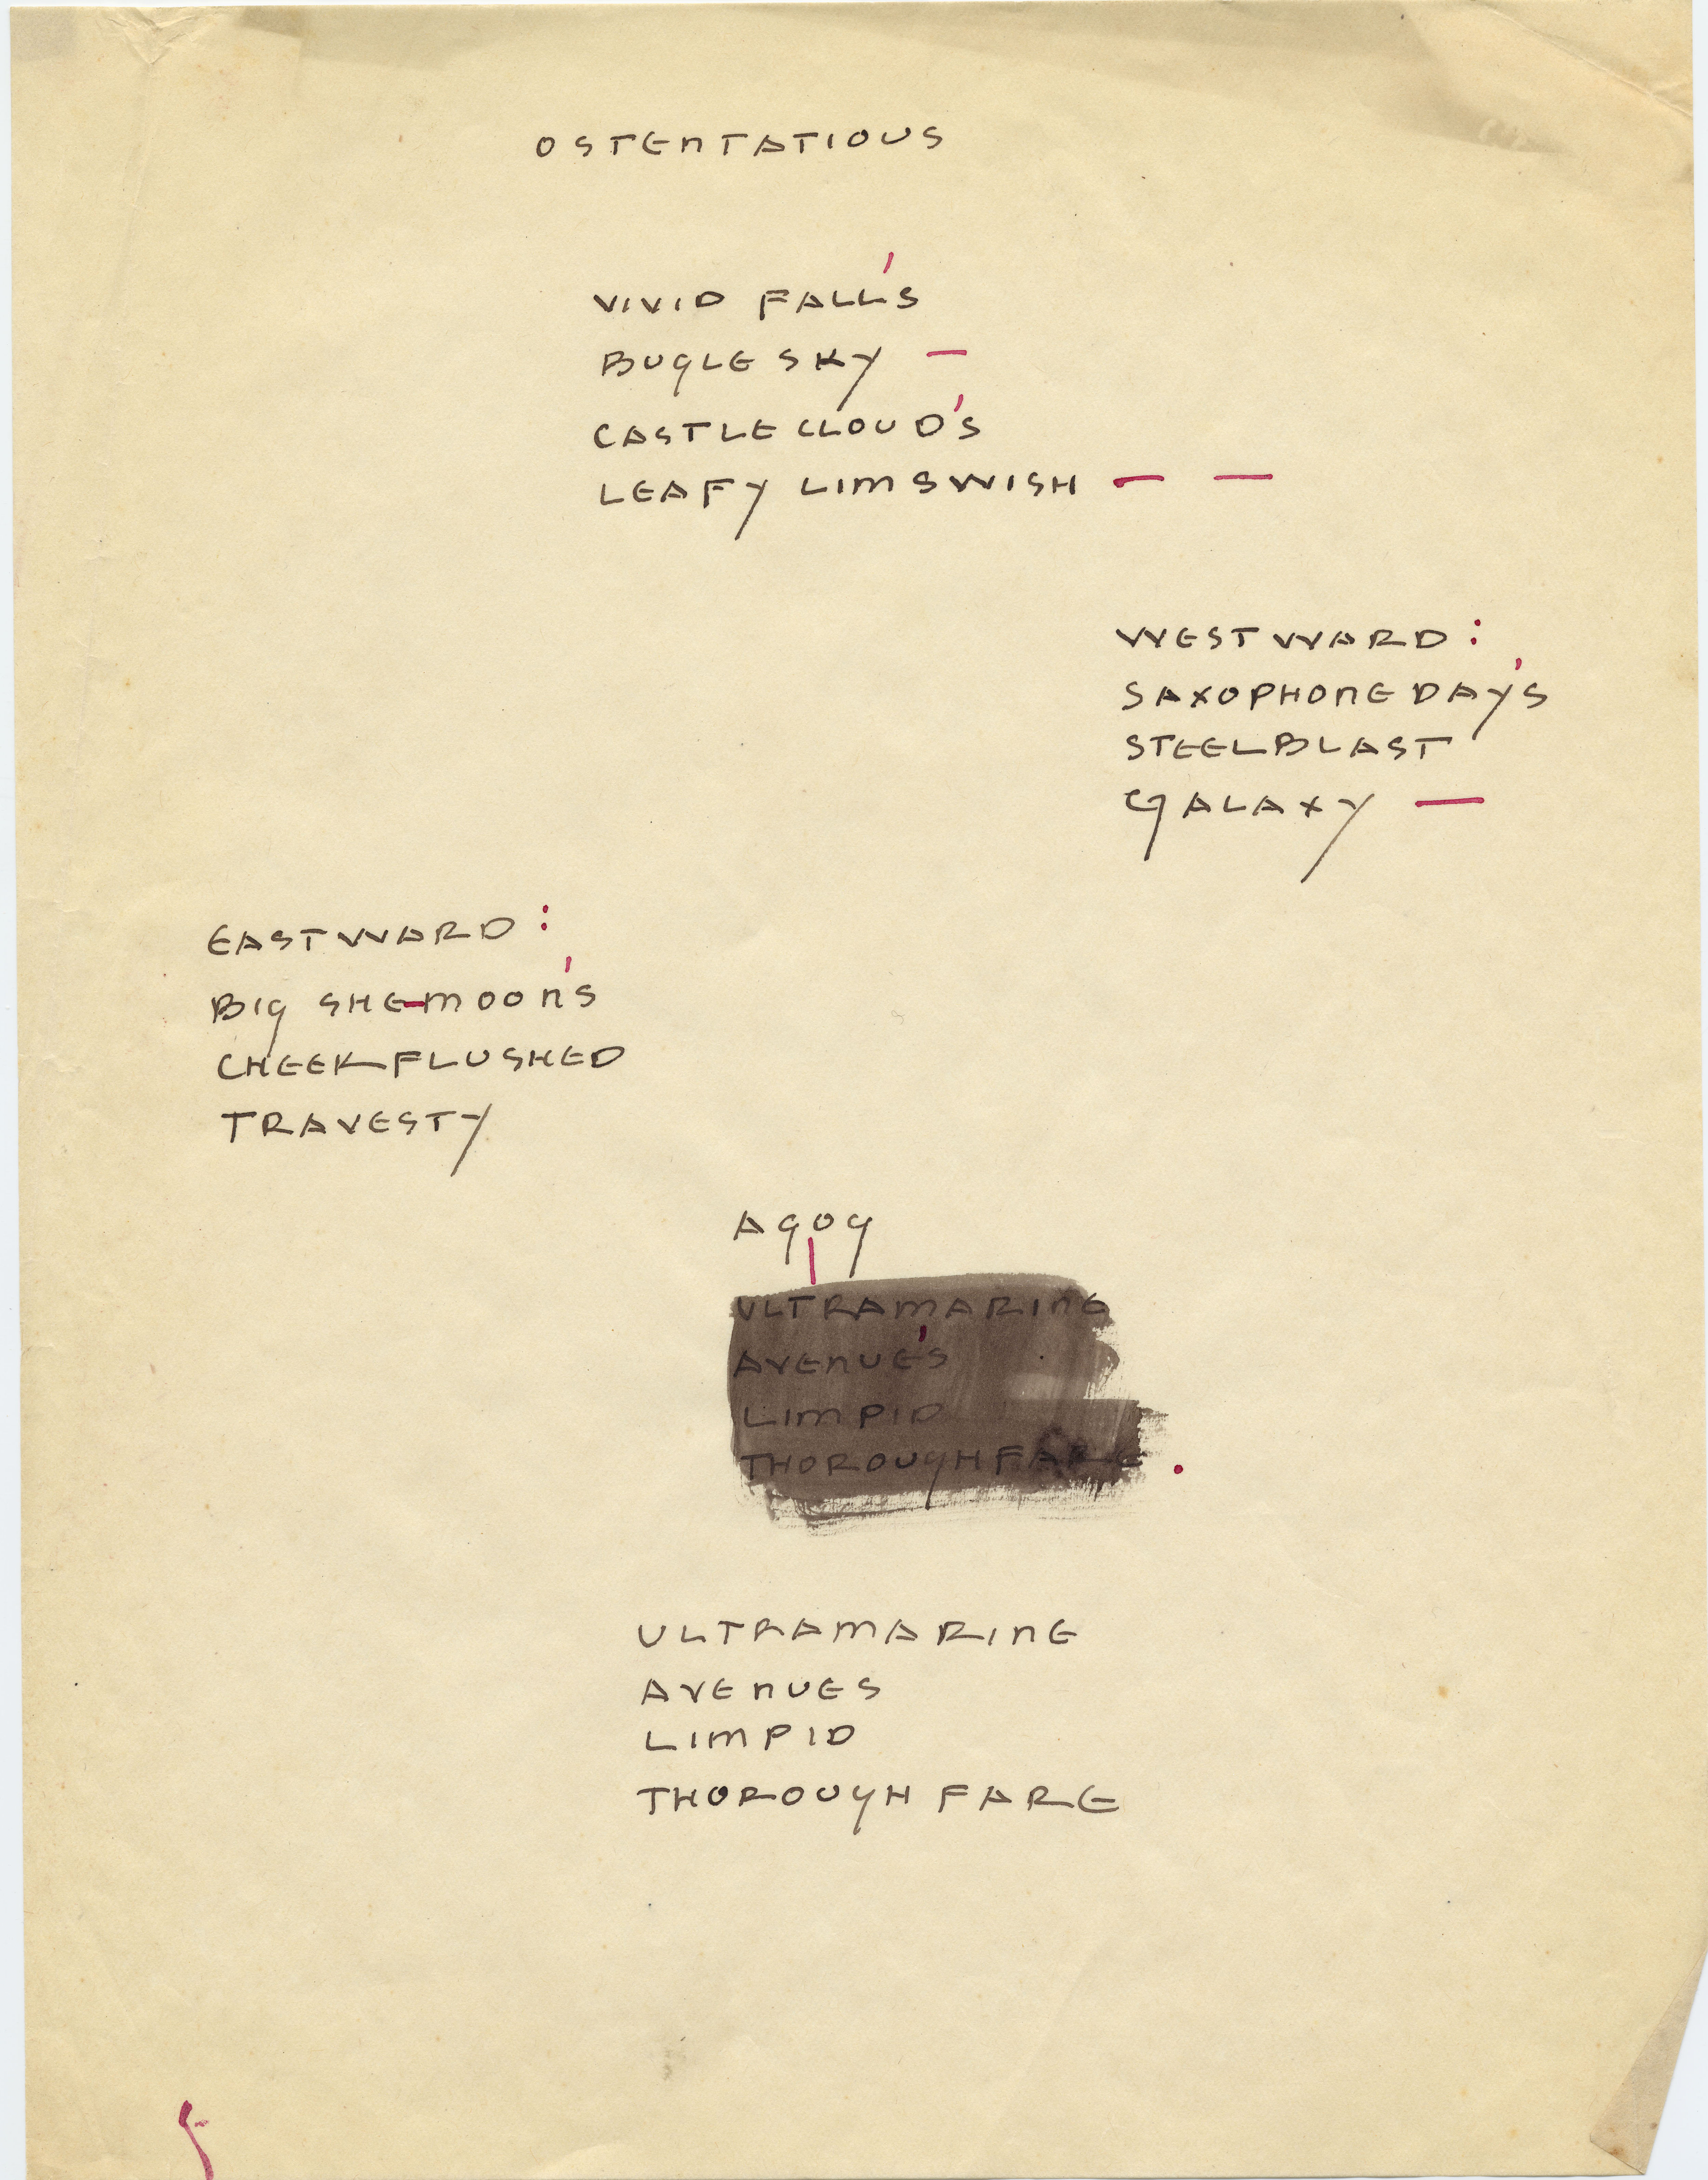 OSTENTATIOUS
VIVID FALL'S
BUGLE SKY —
CASTLE CLOUD'S
LEAFY LIMSWISH — —
WESTWARD:
SAXOPHONE DAY'S
STEELBLAST
GALAXY —
EASTWARD:
BIG SHE-MOON'S
CHEEKFLUSHED
TRAVESTY
AGOG
|
ULTRAMARINE
AVENUE'S
LIMPID
THOROUGHFARE.
ULTRAMARINE
AVENUES
LIMPID
THOROUGHFARE